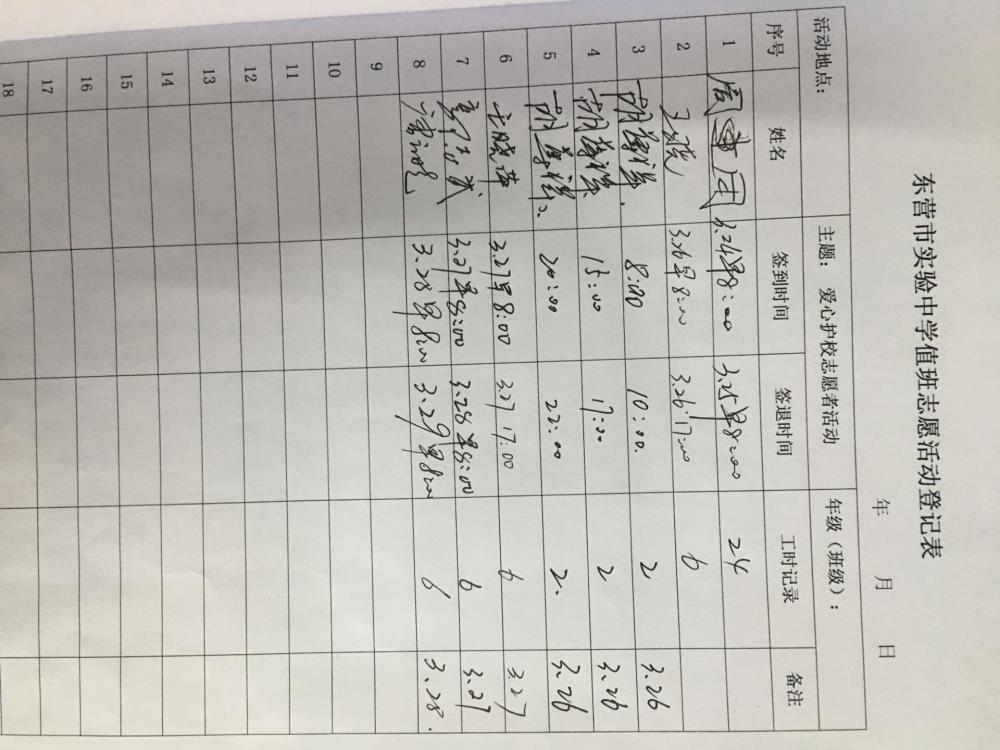 东营市实验中学值班志愿活动登记表
年 月 日
活动地点： 主题：爱心护校志愿者活动 年级（班级）：
序号 姓名 签到时间 签退时间 工时记录 备注
1 周 3.24早8:00 3.25早8:00 24
2 3.26早8:00 3.26.17:00 6
3 8:00 10:00. 2 3.26
4 15:00 17:00 2 3.26
5 20:00 22:00 2. 3.26
6 王晓燕 3.27早8:00 3.27 17:00 6 3.27
7 3.27早8:00 3.28早8:00 6 3.27
8 3.28早8:00 3.29早8:00 6 3.28.
9
10
11
12
13
14
15
16
17
18